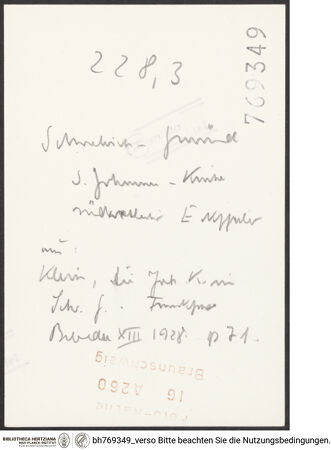 228,3
769349
Schwäbisch-Gmünd
S. Johannes-Kirche
südwestlicher Eckpfeiler
aus:
Klein, die Joh. K. in
Schw. G. Frankfurt
XIII 1928. p 71.
IG A260
Braunschweig
BIBLIOTHECA HERTZIANA
MAX-PLANCK-INSTITUT
FÜR KUNSTGESCHICHTE
bh769349_verso Bitte beachten Sie die Nutzungsbedingungen.